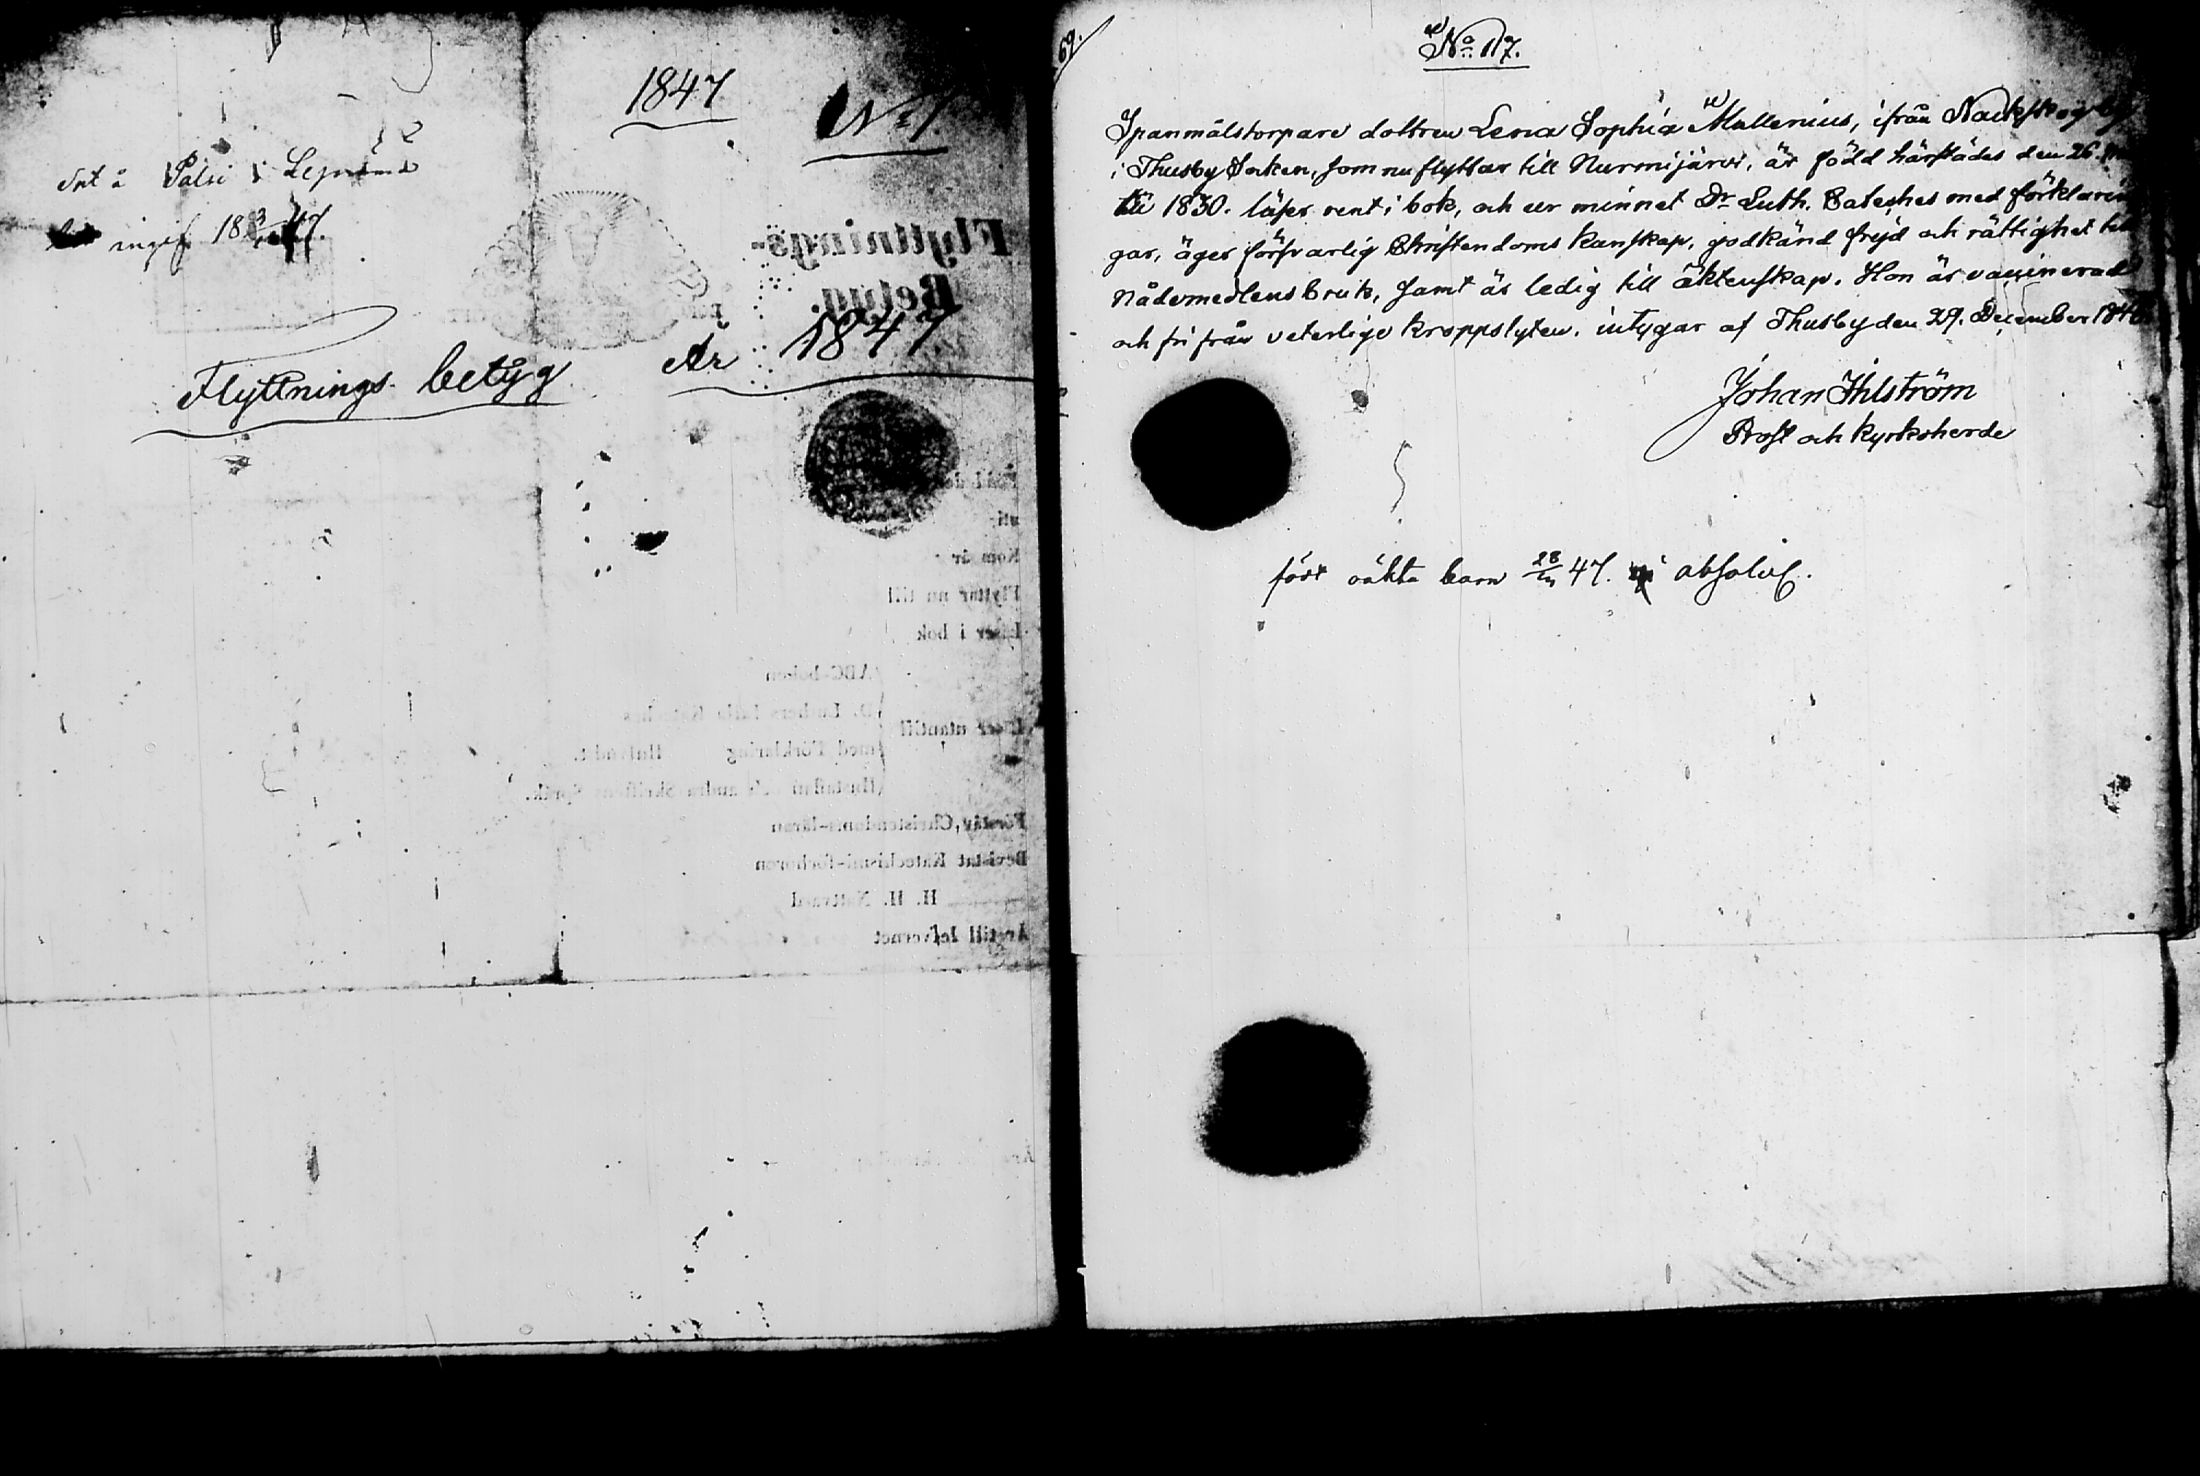 1847
No 1.
Palsi i
ingif 18 3/ 47.
Flyttnings-
Betyg.
Flyttnings betyg År 1847
Född den
uti
Kom år
Flyttar nu till
Läser i bok
ABC-boken
D. Luthers lilla Kateches
Läser utantill
med Förklaring Hufvud t.
Hustaflan och andra Skriftens Språk.
Förstår Christendoms-läran
Bevistat Katechismi-förhören
H. H. Nattvard
Är till lefvernet
69.
No 117.
Spanmålstorpare dottren Lena Sophia Mullenius, ifrån Nackskog by
i Thusby Socken, som nu flyttar till Nurmijärvi, är född härstädes den 26.
1830. läser rent i bok, och ur minnet Dr Luth. Cateches med förklarin
gar, äger försvarlig Christendoms kunskap, godkänd frejd och rättighet till
nådemedlens bruk, samt är ledig till äktenskap. Hon är vaccinerad
och fri från veterlige kroppslyten, intygar af Thusby den 29. December 1846.
Johan Ihlström
Prost och Kyrkoherde
född oäkta barn 28/ 47. absolv.